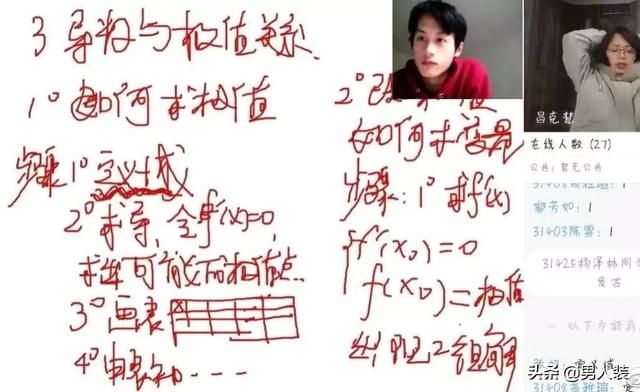 3 导数与极值关系
1° 如何求极值
步骤:1° 定义域
2° 求导,令f'(x)=0,
求出可能的极值点
3° 画表
4° 由表知···
2° 已 极值
如何求变量
步骤:1° 求f'(x)
f'(x₀)=0
f(x₀)=极值
昌克慧
在线人数 (27)
公告:暂无公告
郭芳如:1
31403陈雪:1
31425杨泽林同学
发言
以下为新消
头条 @男人装